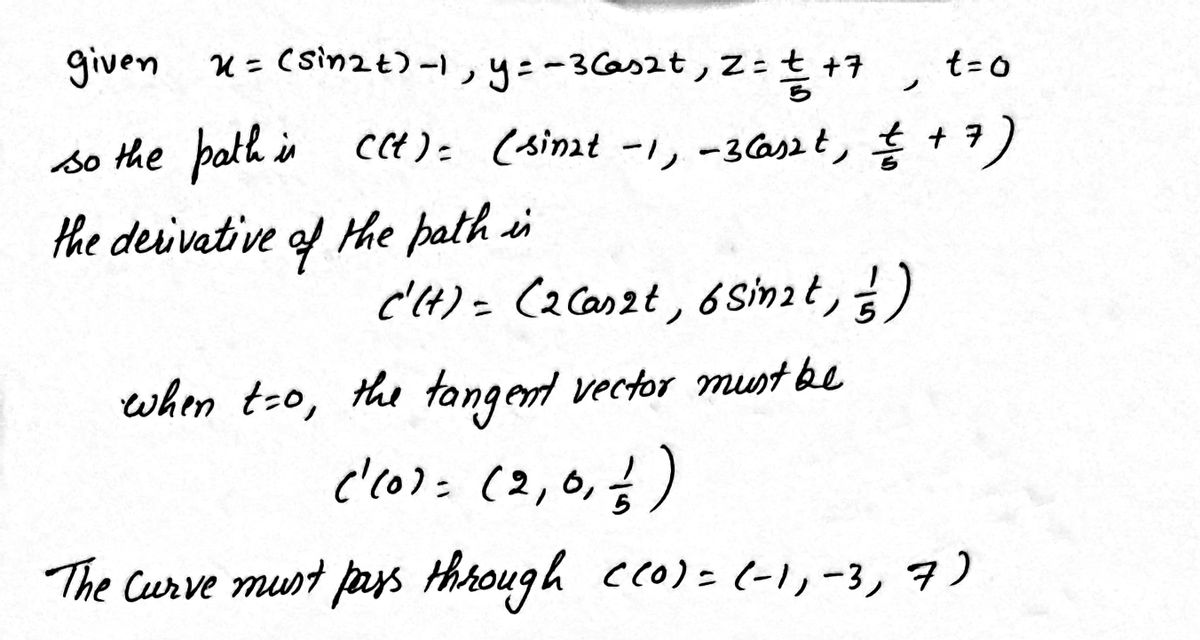 given x = (sin2t)-1, y=-3Cos2t, z=t/5 +7 , t=0
so the path is c(t)= (sin2t -1, -3Cos2t, t/5 + 7)
the derivative of the path is
c'(t) = (2Cos2t, 6Sin2t, 1/5)
when t=0, the tangent vector must be
c'(0)= (2,0,1/5)
The Curve must pass through c(0)=(-1,-3, 7)